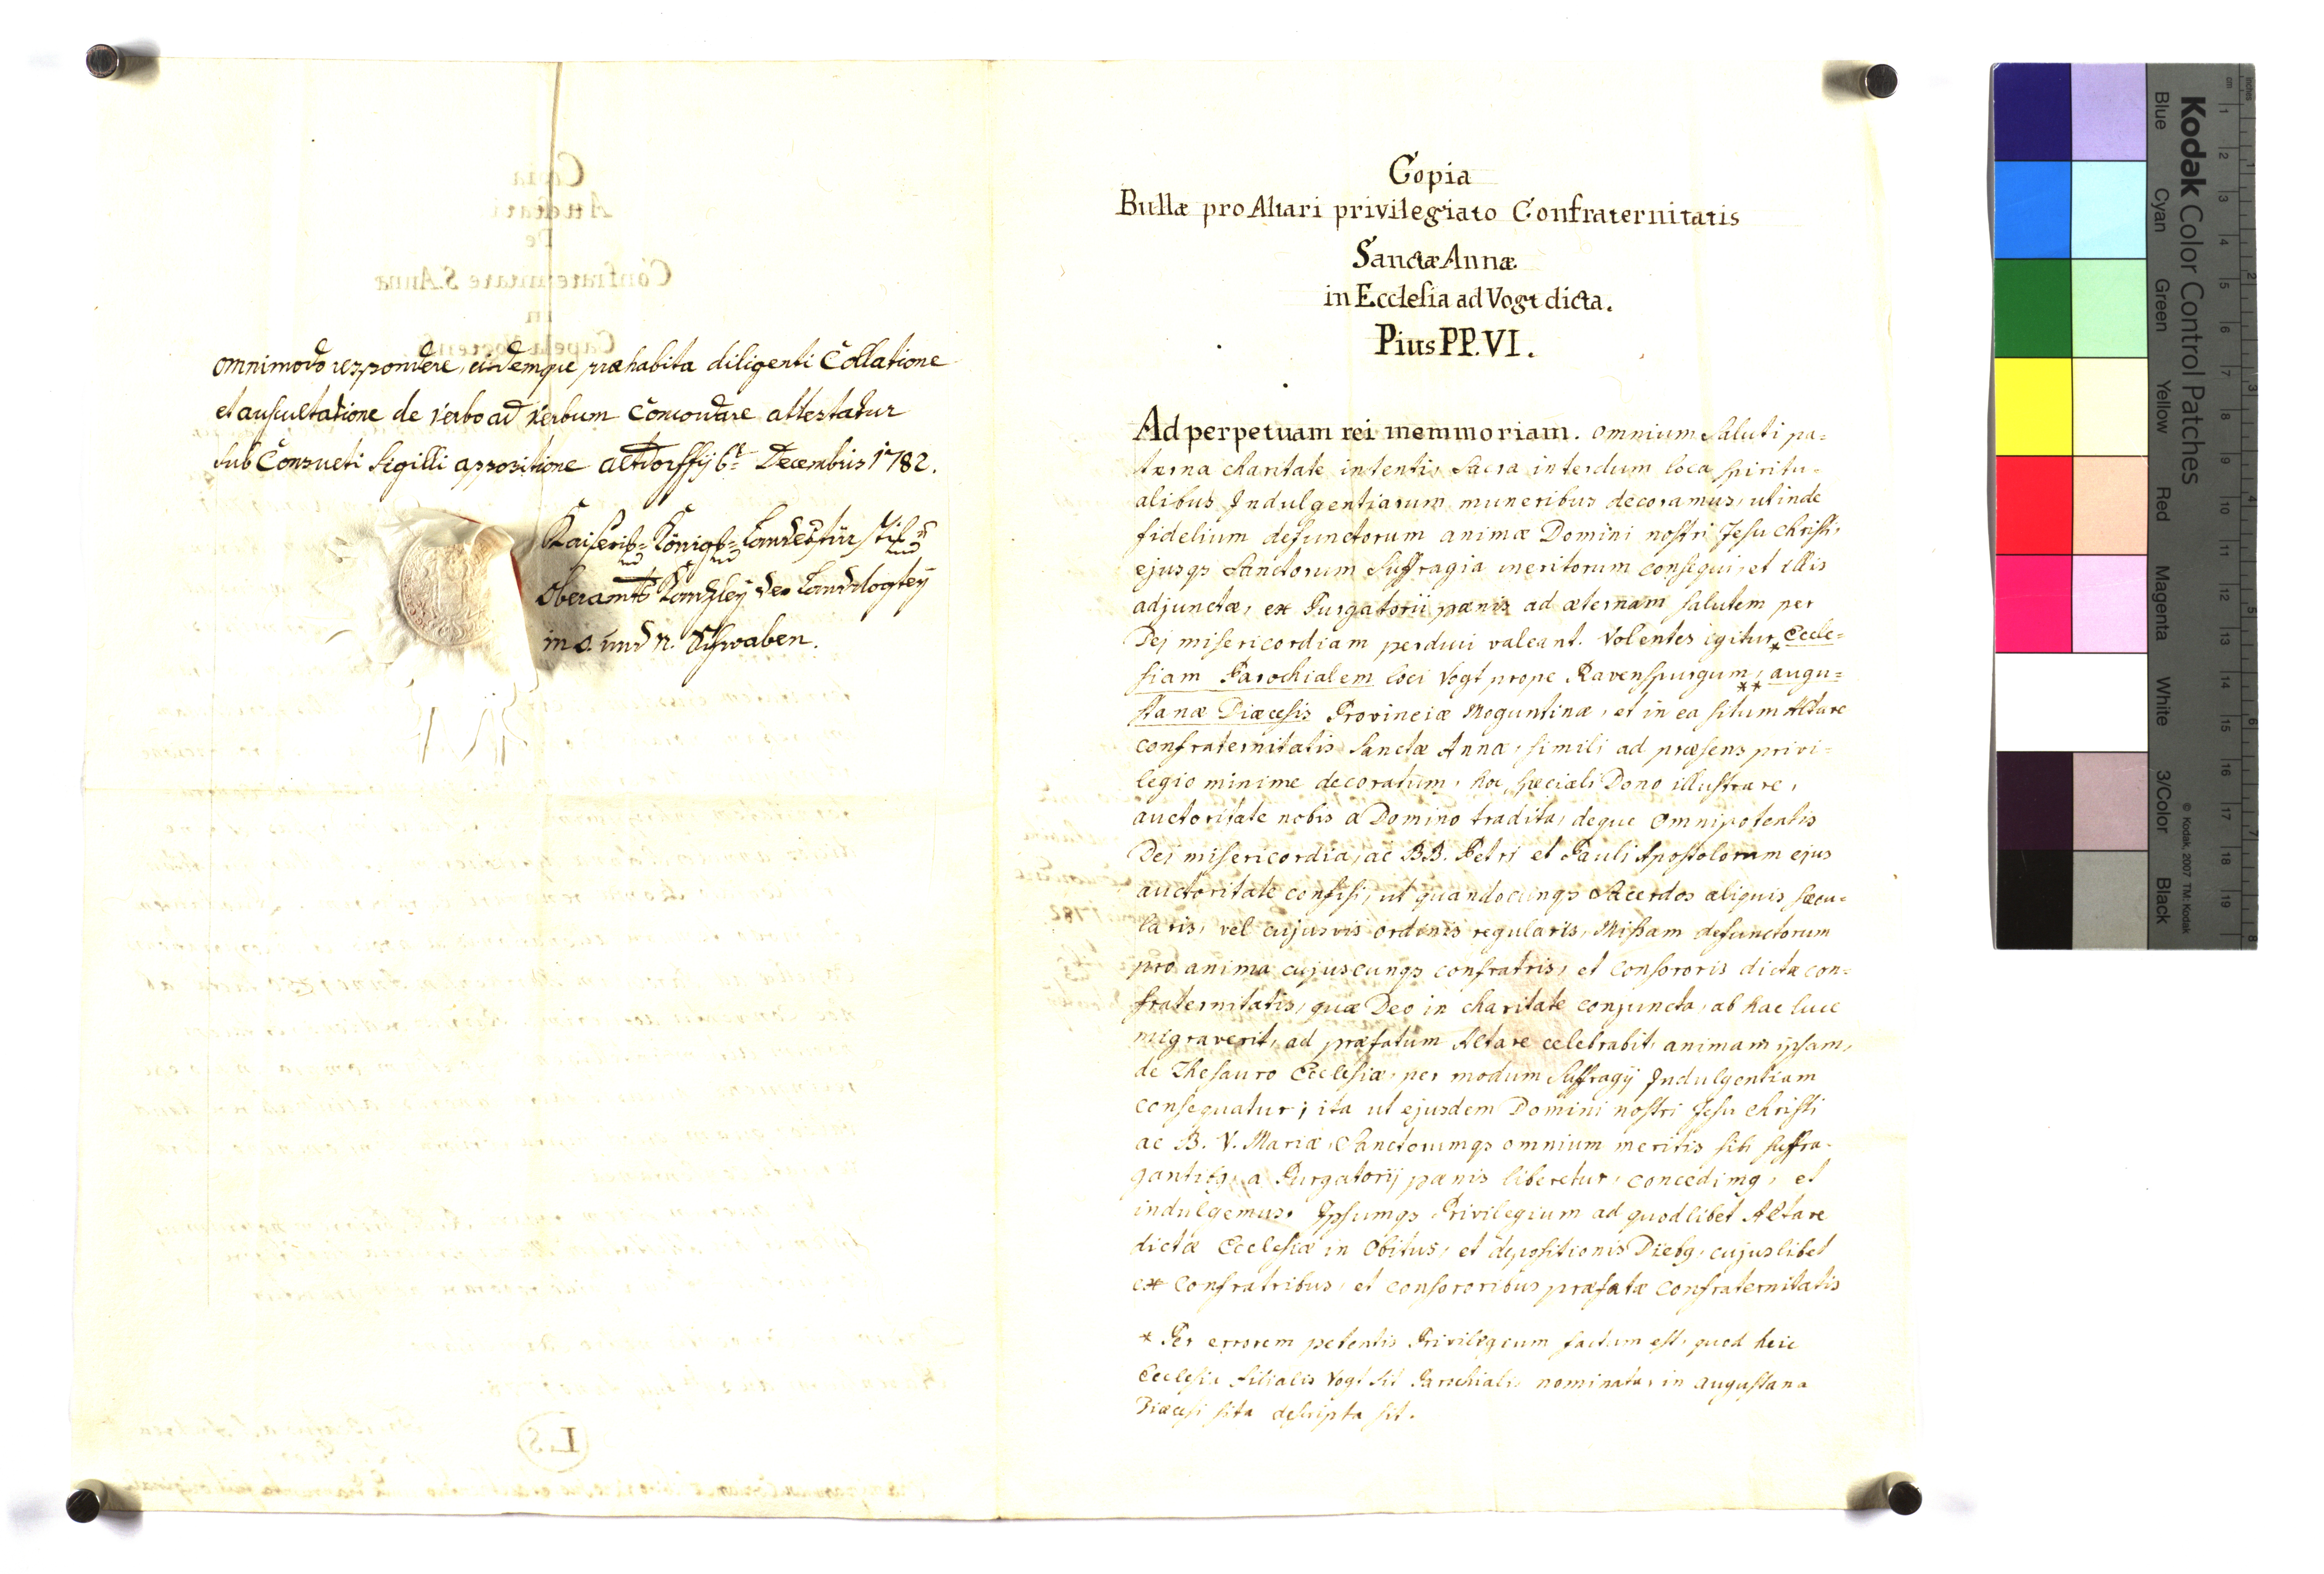 omnimodo respondere, eidemque præhabita diligenti Collatione
et auscultatione de verbo ad verbum Concordare attestatur
sub Consueti Sigilli appositione Altdorffij 6t Decembris 1782.
Kaiserl= Königl=
Oberamts Kanzley der Landvogtey
in O. und N. Schwaben.
Copia
Bullæ pro Altari privilegiato Confraternitatis
Sanctæ Annæ
in Ecclesia ad Vogt dicta.
Pius PP. VI.
Ad perpetuam rei memmoriam. omnium Saluti pa=
terna charitate intenti, Sacra interdum loca Spiritu=
alibus Indulgentiarum muneribus decoramus, ut inde
fidelium defunctorum animæ Domini nostri Jesu Christi,
ejusqs Sanctorum Suffragia meritorum consequi, et illis
adjunctæ, ex Purgatorii pænis ad æternam salutem per
Dej misericordiam perduci valeant. Volentes igitur * Eccle=
siam Parochialem loci Vogt prope Ravenspurgum, ** augu=
stanæ Diæcesis Provinciæ Moguntinæ, et in ea situm Altare
confraternitatis Sanctæ Annæ, simili ad præsens privi=
legio minime decoratum, hoc speciali Dono illustrare,
auctoritate nobis a Domino tradita, deque Omnipotentis
Dei misericordia, ac BB. Petri et Pauli Apostolorum ejus
auctoritate confisi, ut quandocunqs Sacerdos aliquis sæcu=
laris, vel cujusvis ordinis regularis, Missam defunctorum
pro anima cujuscunqs confratris, et consororis dictæ con=
fraternitatis, quæ Deo in charitate conjuncta, ab hac luce
migraverit, ad præfatum Altare celebrabit, animam ipsam,
de Thesauro Ecclesiæ, per modum Suffragij Indulgentiam
consequatur; ita ut ejusdem Domini nostri Jesu Christi
ac B. V. Mariæ, Sanctorumqs omnium meritis sibi suffra=
gantibs, a Purgatorij pænis liberetur, concedimg, et
indulgemus. Ipsumqs Privilegium ad quodlibet Altare
dictæ Ecclesiæ in Obitus, et depositionis Diebg, cujuslibet
ex Confratribus, et consororibus præfatæ Confraternitatis
* Per errorem petentis Privilegium factum est, quod heic
Ecclesia filialis Vogt sit Parochialis nominata, in augustana
Diæcesi sita descripta sit.
Kodak Color Control Patches
Blue Cyan Green Yellow Red Magenta White 3/Color Black
© Kodak, 2007 TM: Kodak
cm 1 2 3 4 5 6 7 8 9 10 11 12 13 14 15 16 17 18 19
inches 1 2 3 4 5 6 7 8